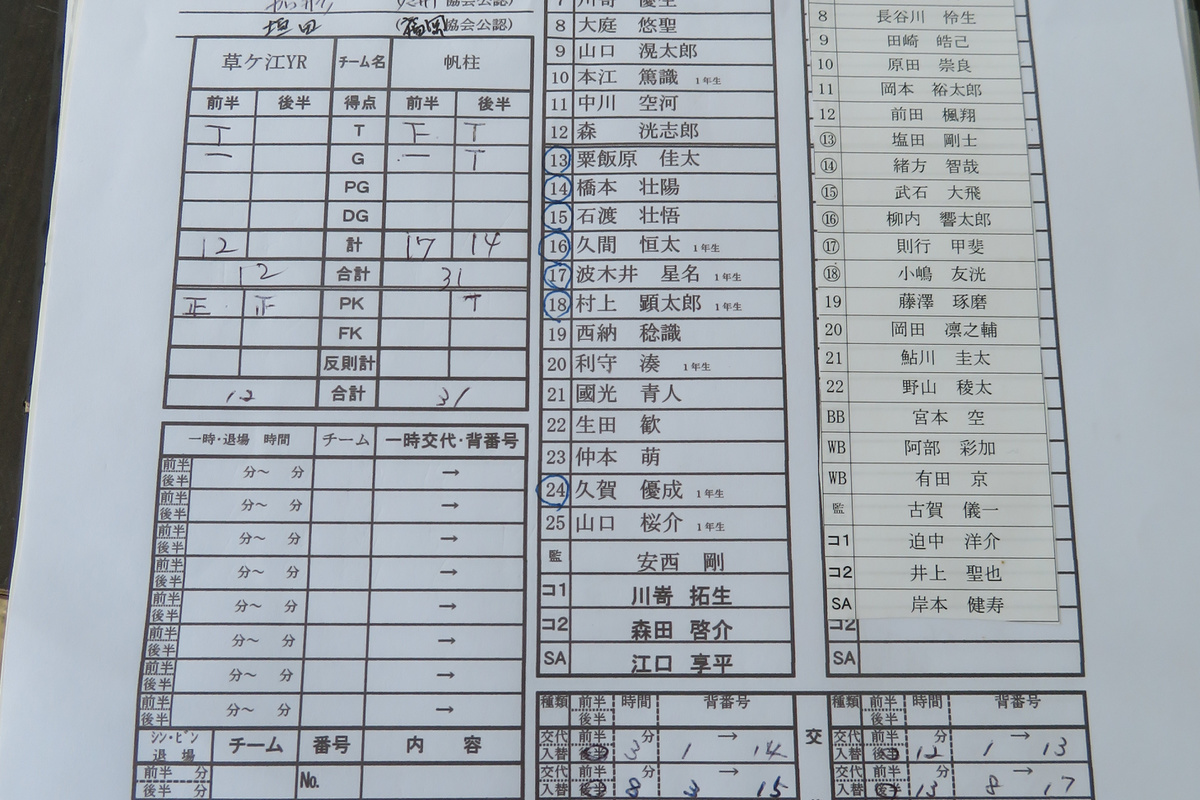 協会公認)
塩田 (福岡協会公認)
草ケ江YR チーム名 帆柱
前半 後半 得点 前半 後半
T 丅 T 下 丅
一 G 一 丅
PG
DG
12 計 17 14
12 合計 31
正 正 PK 丅
FK
反則計
12 合計 31
一時・退場 時間 チーム 一時交代・背番号
前半 分〜 分 →
後半
前半 分〜 分 →
後半
前半 分〜 分 →
後半
前半 分〜 分 →
後半
前半 分〜 分 →
後半
前半 分〜 分 →
後半
前半 分〜 分 →
後半
前半 分〜 分 →
後半
シン・ビン
退場 チーム 番号 内容
前半 分 No.
後半 分
8 大庭 悠聖
9 山口 滉太郎
10 本江 篤識 1年生
11 中川 空河
12 森 洸志郎
13 粟飯原 佳太
14 橋本 壮陽
15 石渡 壮悟
16 久間 恒太 1年生
17 波木井 星名 1年生
18 村上 顕太郎 1年生
19 西納 稔識
20 利守 湊 1年生
21 國光 青人
22 生田 歓
23 仲本 萌
24 久賀 優成 1年生
25 山口 桜介 1年生
監 安西 剛
コ1 川嵜 拓生
コ2 森田 啓介
SA 江口 享平
8 長谷川 怜生
9 田崎 皓己
10 原田 崇良
11 岡本 裕太郎
12 前田 楓翔
⑬ 塩田 剛士
⑭ 緒方 智哉
⑮ 武石 大飛
⑯ 柳内 響太郎
⑰ 則行 甲斐
⑱ 小嶋 友洸
19 藤澤 琢磨
20 岡田 凛之輔
21 鮎川 圭太
22 野山 稜太
BB 宮本 空
WB 阿部 彩加
WB 有田 京
監 古賀 儀一
コ1 迫中 洋介
コ2 井上 聖也
SA 岸本 健寿
コ2
SA
種類 前半 時間 背番号
後半
交代 前半 3分 1 → 14
入替 後半
交代 前半 8 3 → 15
入替
交
種類 前半 時間 背番号
後半
交代 前半 12分 1 → 13
入替
交代 前半 13 8 → 17
入替